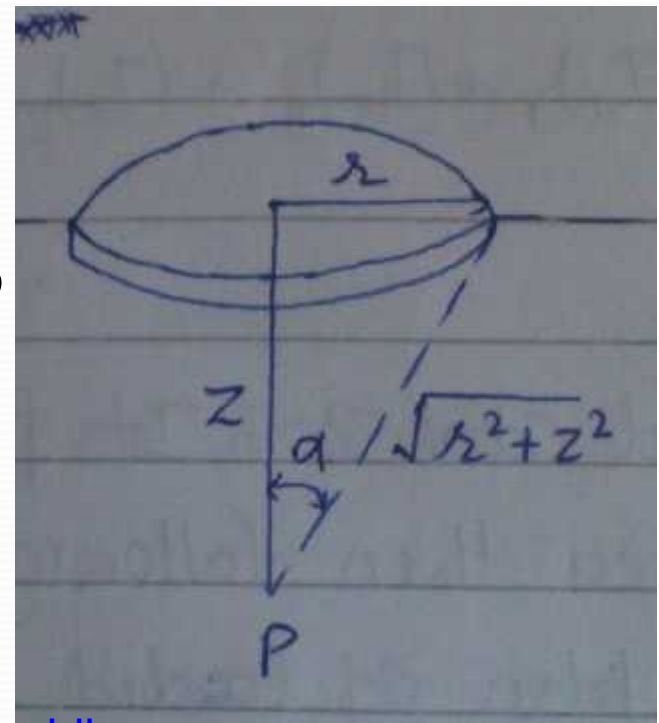 r
)
Z
α
√r²+z²
P